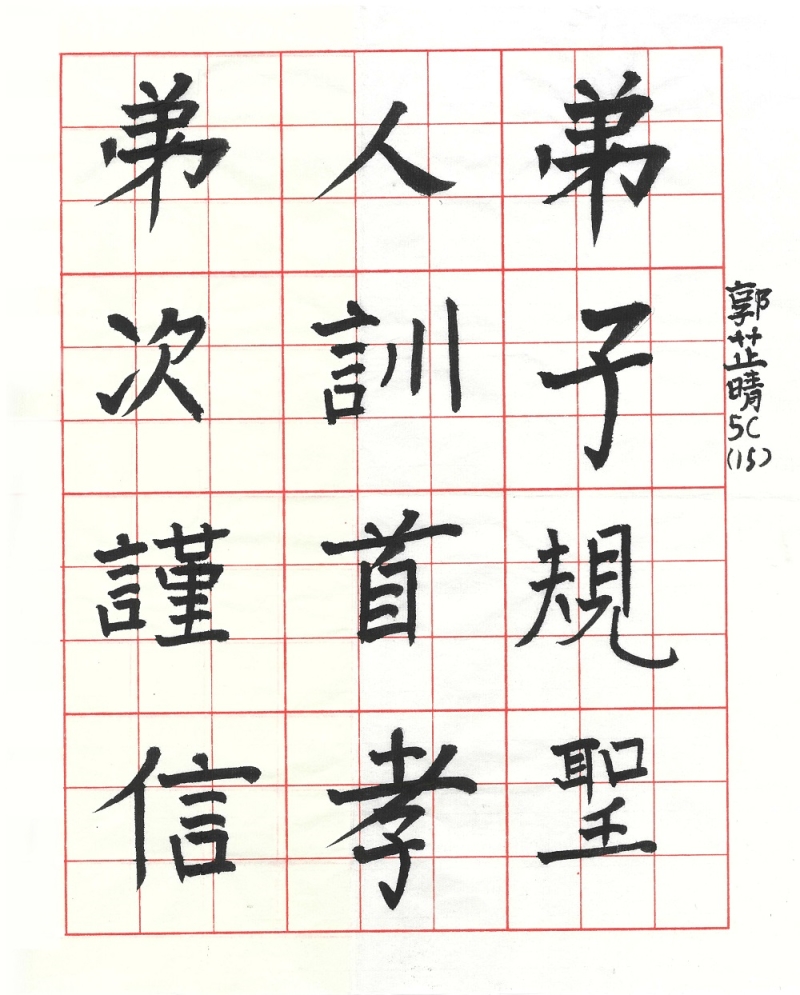 弟子規聖
人訓首孝
弟次謹信
郭芷晴5C(15)